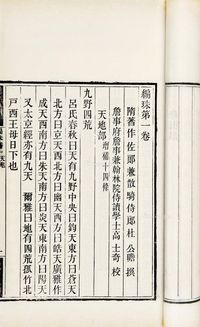 編珠第一卷
隋著作佐郎兼散騎侍郎杜公瞻撰
詹事府詹事兼翰林院侍讀學士高士奇校
天地部 增補十四條
九野四荒
呂氏春秋曰天有九野中央曰鈞天東方曰蒼天
北方曰玄天西北方曰幽天西方曰皓天廣雅作
成天西南方曰朱天南方曰炎天東南方曰陽天
又太玄經亦有九天 爾雅曰地有四荒孤竹北
戶西王母日下也